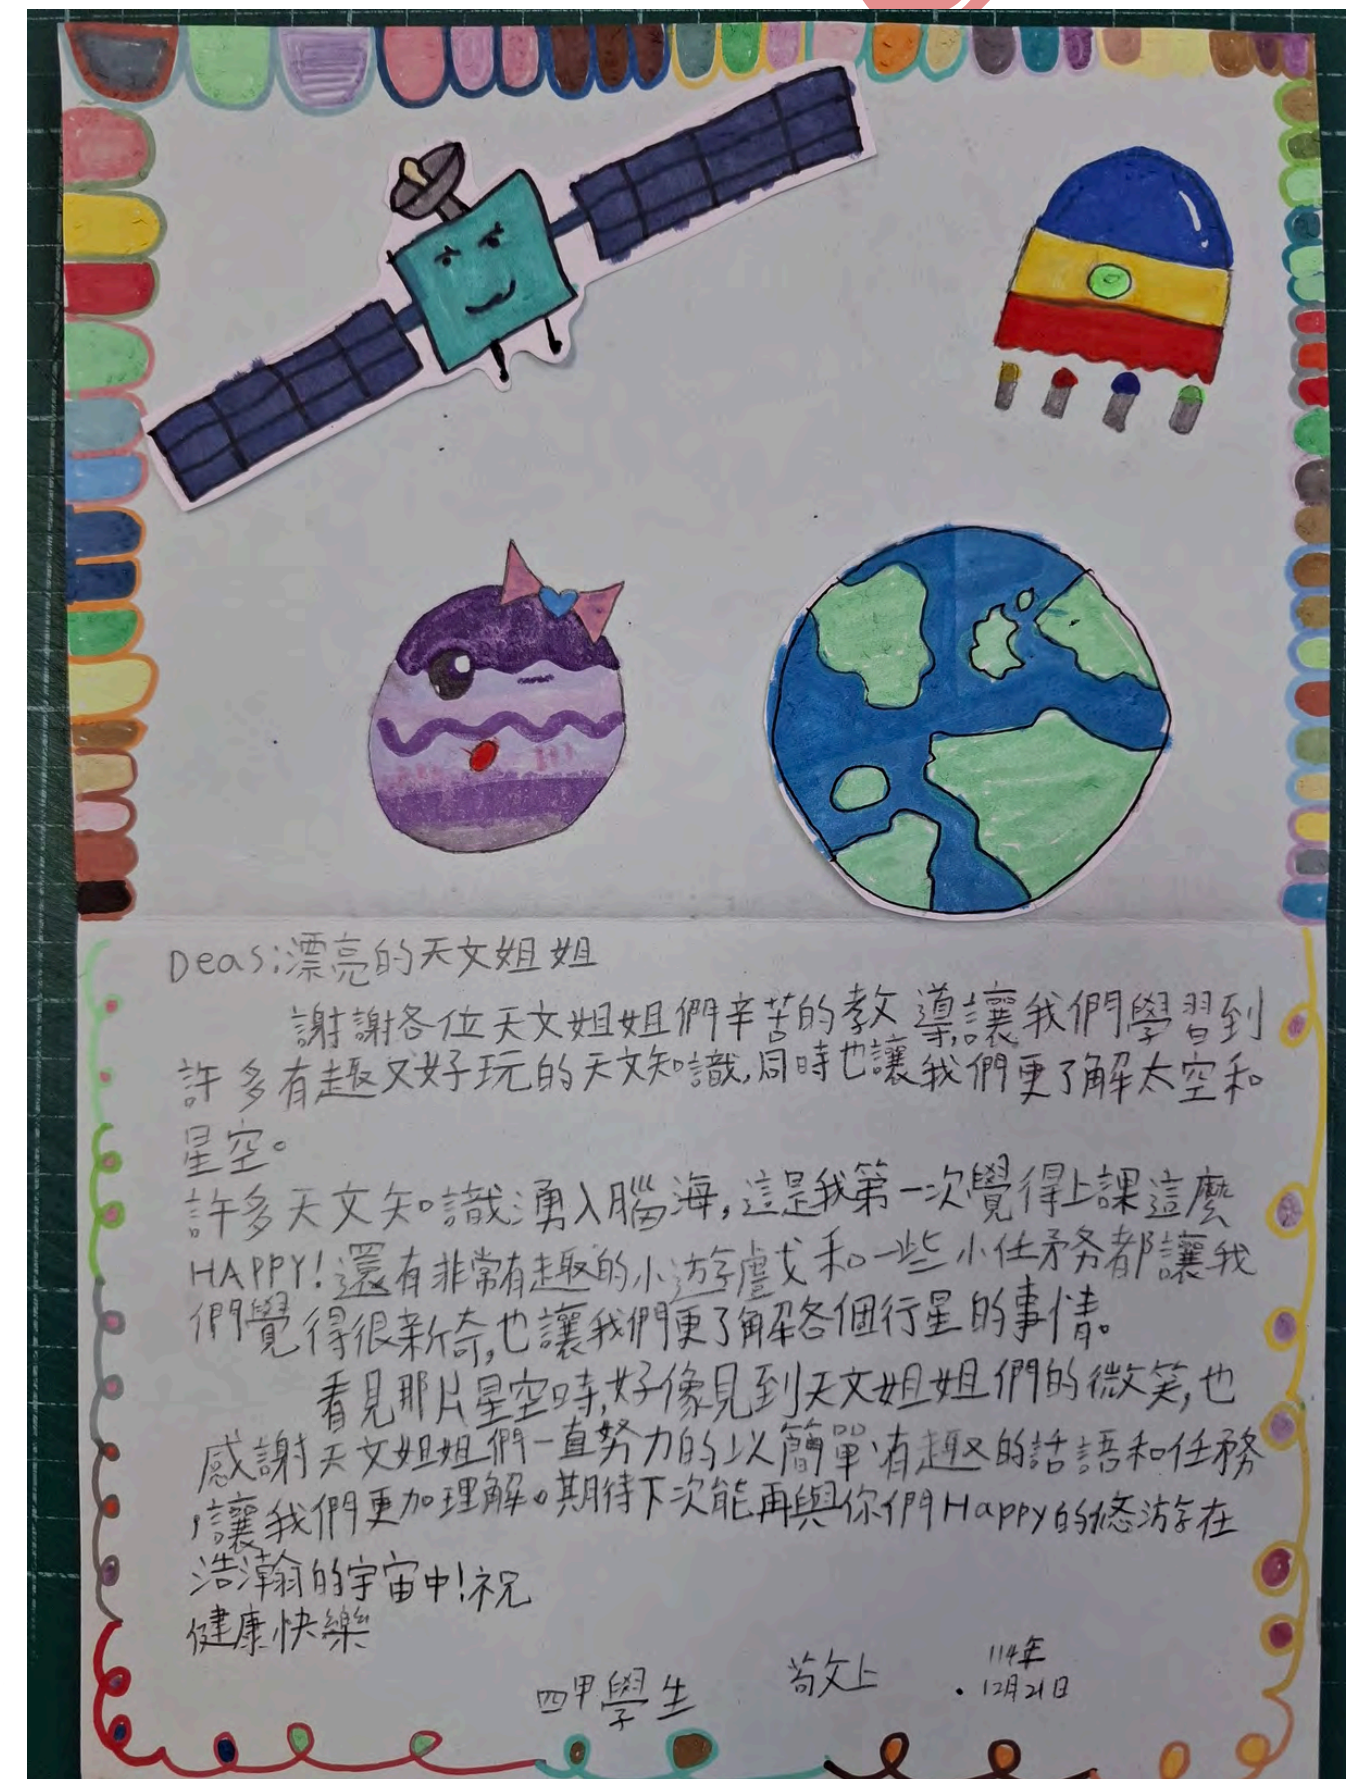 Deas:漂亮的天文姐姐
謝謝各位天文姐姐們辛苦的教導,讓我們學習到
許多有趣又好玩的天文知識,同時也讓我們更了解太空和
星空。
許多天文知識湧入腦海,這是我第一次覺得上課這麼
HAPPY!還有非常有趣的小遊戲和一些小任務都讓我
們覺得很新奇,也讓我們更了解各個行星的事情。
看見那片星空時,好像見到天文姐姐們的微笑,也
感謝天文姐姐們一直努力的以簡單有趣的話語和任務
,讓我們更加理解。期待下次能再與你們Happy的悠游在
浩瀚的宇宙中!祝
健康快樂
四甲學生 敬上
114年
12月21日